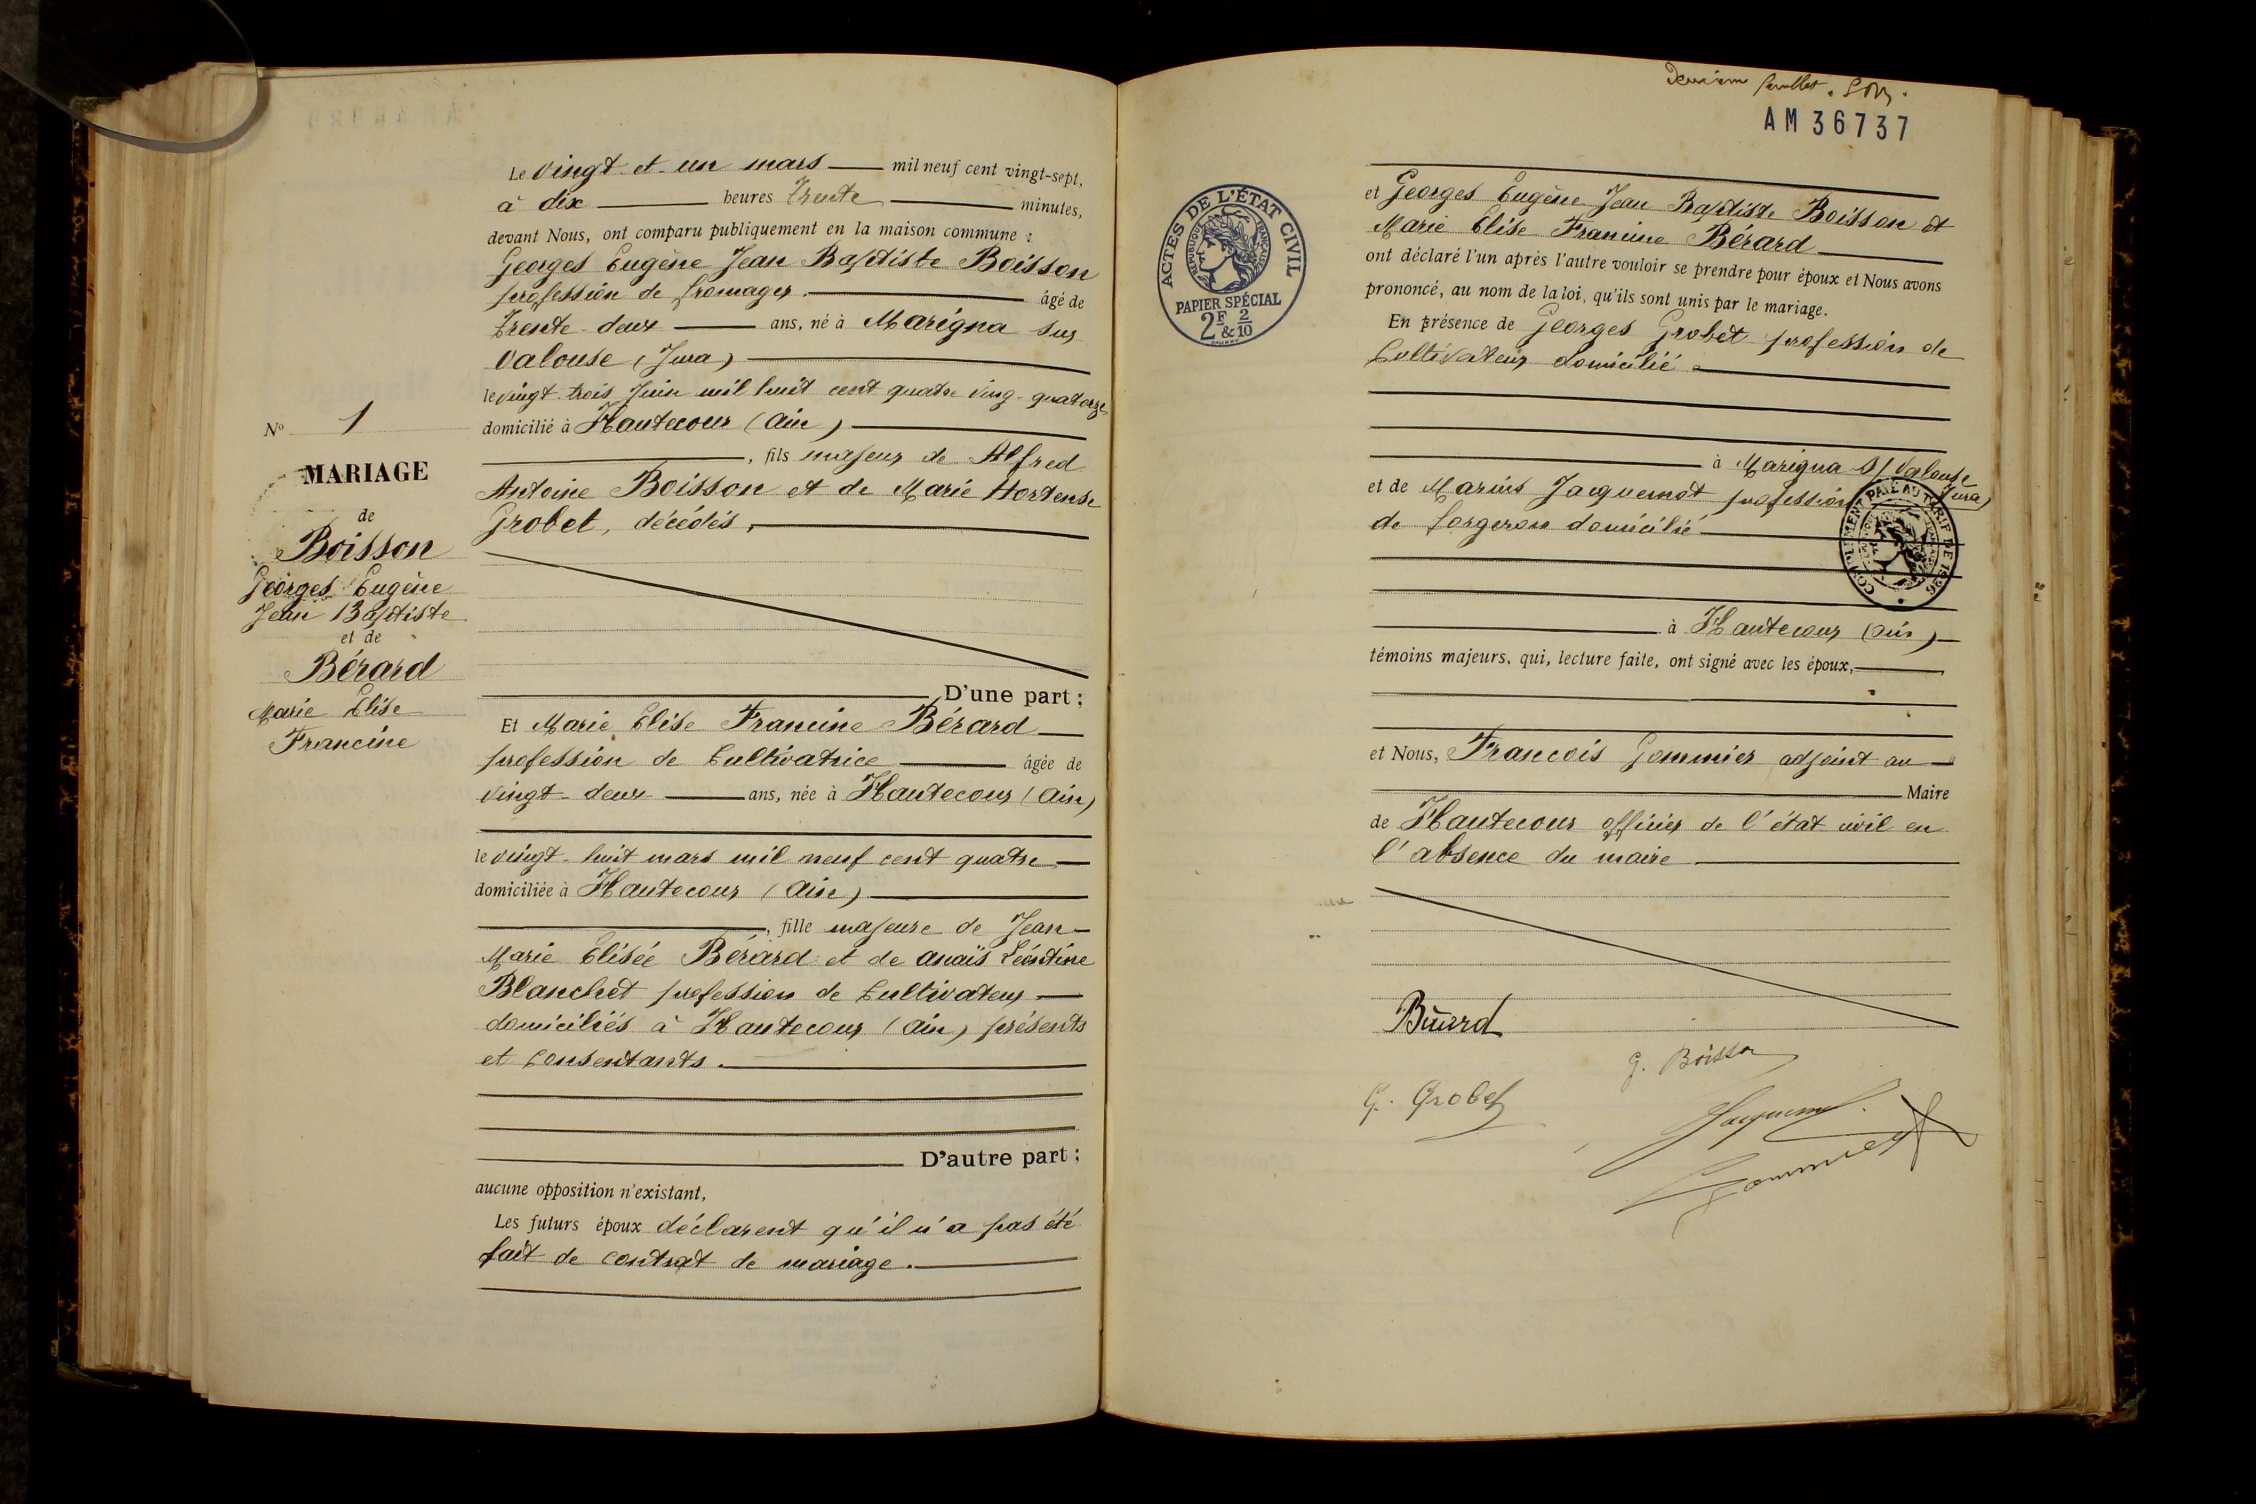 Le vingt et un mars mil neuf cent vingt-sept,
à dix heures trente minutes,
devant Nous, ont comparu publiquement en la maison commune :
Georges Eugène Jean Baptiste Boisson
profession de fromager. âgé de
trente-deux ans, né à Marigna sur
Valouse (Jura)
le vingt trois Juin mil huit cent quatre ving-quatorze
domicilié à Hautecour (Ain)
, fils majeur de Alfred
Antoine Boisson et de Marie Hortense
Grobet, décédés,
D'une part ;
Et Marie Elise Francine Bérard
profession de Cultivatrice âgée de
vingt-deux ans, née à Hautecour (Ain)
le vingt-huit mars mil neuf cent quatre
domiciliée à Hautecour (Ain)
, fille majeure de Jean
Marie Elisée Bérard et de Anaïs Léontine
Blanchet profession de Cultivateur
domiciliés à Hautecour (Ain) présents
et consentants.
D'autre part ;
aucune opposition n'existant,
Les futurs époux déclarent qu'il n'a pas été
fait de contrat de mariage.
No 1
MARIAGE
de
Boisson
Georges Eugène
Jean Baptiste
et de
Bérard
Marie Elise
Francine
Deuxième feuillet.
AM 36737
ACTES DE L'ÉTAT CIVIL
RÉPUBLIQUE FRANÇAISE
PAPIER SPÉCIAL
2F & 2/10
et Georges Eugène Jean Baptiste Boisson et
Marie Elise Francine Bérard
ont déclaré l'un après l'autre vouloir se prendre pour époux et Nous avons
prononcé, au nom de la loi, qu'ils sont unis par le mariage.
En présence de Georges Grobet profession de
Cultivateur domicilié
à Marigna s/ Valouse
(Jura)
et de Marius Jacquemot profession
de forgeron domicilié
COMPLÉMENT PAYÉ AU TARIF DE 1926
à Hautecour (Ain)
témoins majeurs, qui, lecture faite, ont signé avec les époux,
et Nous, Francois Gommier adjoint au
Maire
de Hautecour officier de l'état civil en
l'absence du maire
Bérard
G. Boisson
G. Grobet
Jacquemot
Gommier